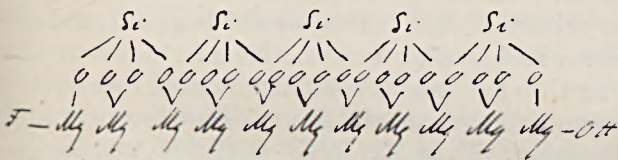 Si Si Si Si Si
O O O O O O O O O O O O O O O O O O O O
F – Mg Mg Mg Mg Mg Mg Mg Mg Mg Mg Mg – OH